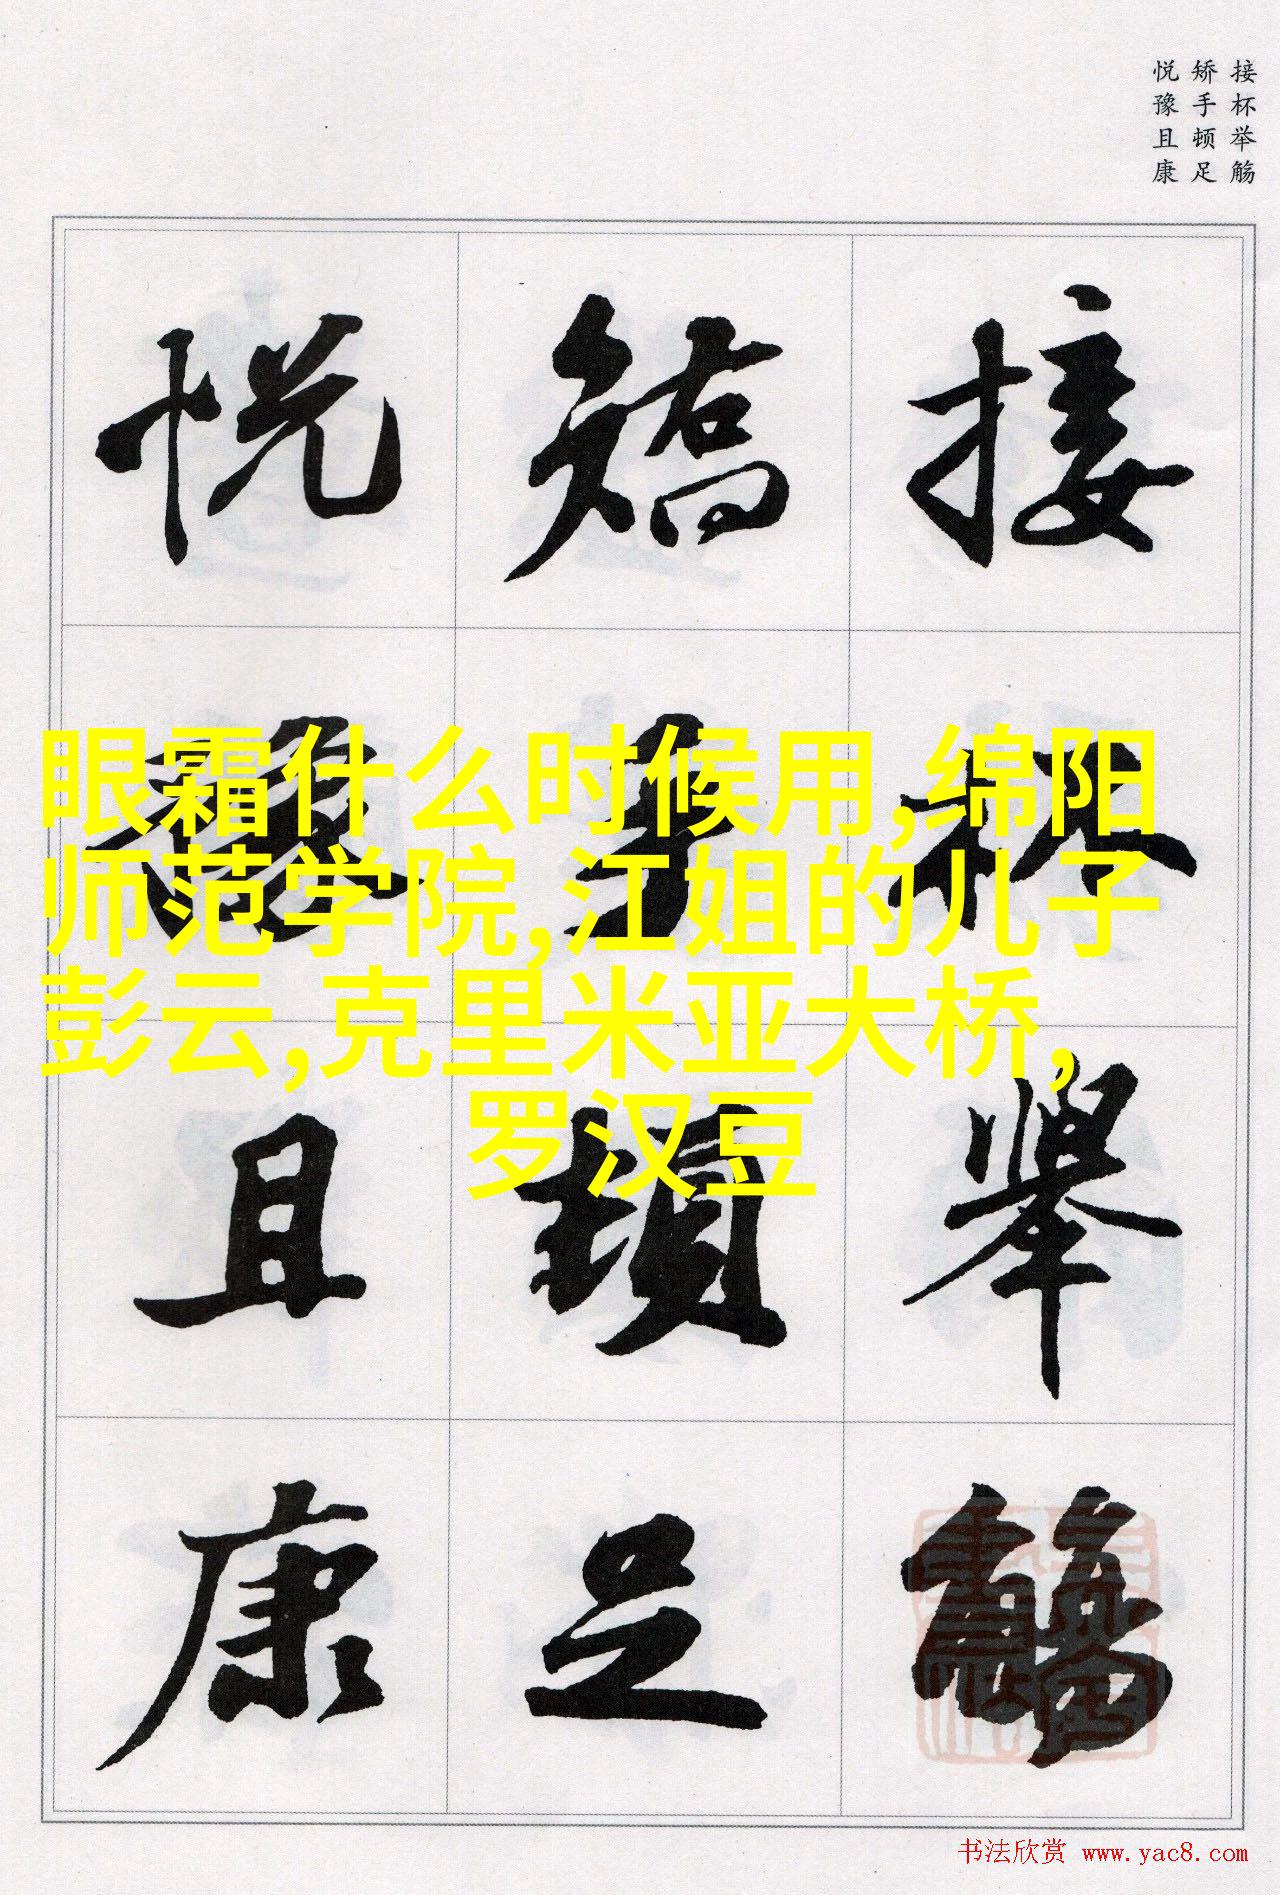 接杯举觞
矫手顿足
悦豫且康
接杯舉觴
矯手頓足
悦豫且康
眼霜什么时候用,绵阳
师范学院,江姐的儿子
彭云,克里米亚大桥,
罗汉豆
书法欣赏 www.yac8.com